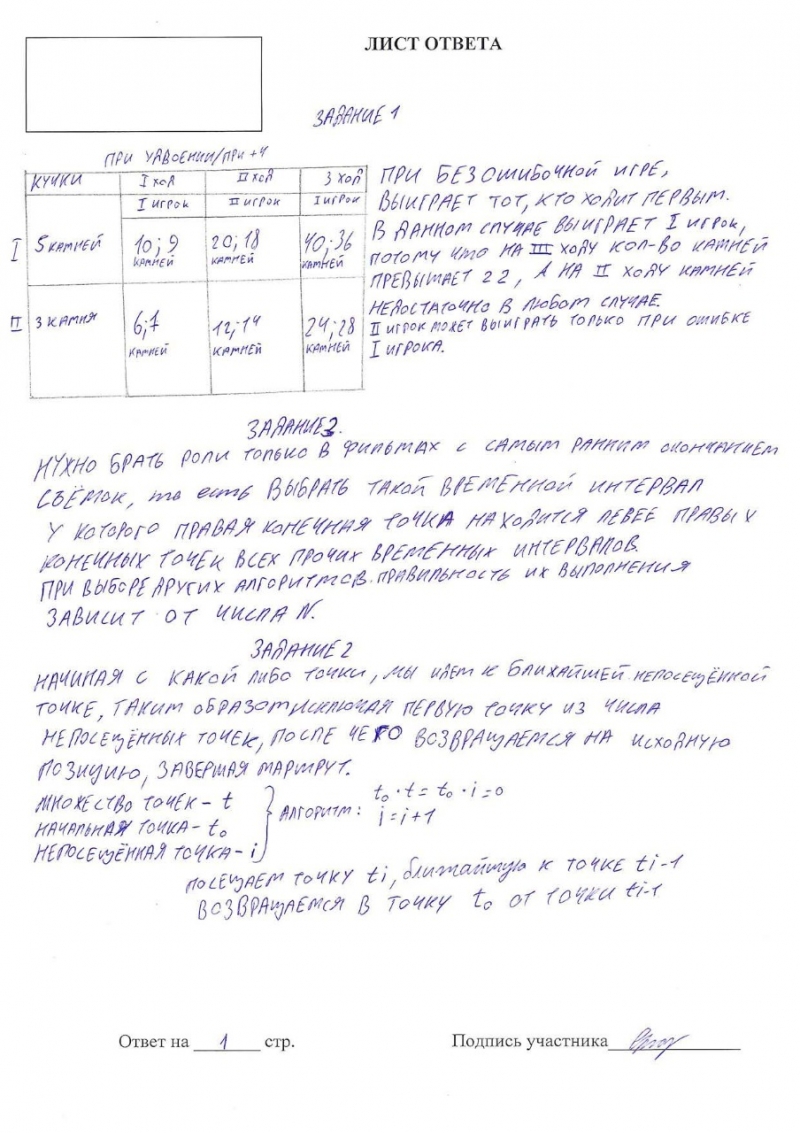 ЛИСТ ОТВЕТА
ЗАДАНИЕ 1
ПРИ УДВОЕНИИ/ПРИ +4
КУЧКИ I ХОД II ХОД 3 ХОД
I ИГРОК II ИГРОК I ИГРОК
I 5 КАМНЕЙ 10; 9 КАМНЕЙ 20; 18 КАМНЕЙ 40; 36 КАМНЕЙ
II 3 КАМНЯ 6; 7 КАМНЕЙ 12; 14 КАМНЕЙ 24; 28 КАМНЕЙ
ПРИ БЕЗОШИБОЧНОЙ ИГРЕ,
ВЫИГРАЕТ ТОТ, КТО ХОДИТ ПЕРВЫМ.
В ДАННОМ СЛУЧАЕ ВЫИГРАЕТ I ИГРОК,
ПОТОМУ ЧТО НА III ХОДУ КОЛ-ВО КАМНЕЙ
ПРЕВЫШАЕТ 22, А НА II ХОДУ КАМНЕЙ
НЕДОСТАТОЧНО В ЛЮБОМ СЛУЧАЕ.
II ИГРОК МОЖЕТ ВЫИГРАТЬ ТОЛЬКО ПРИ ОШИБКЕ
I ИГРОКА.
ЗАДАНИЕ 3.
НУЖНО БРАТЬ РОЛИ ТОЛЬКО В ФИЛЬМАХ С САМЫМ РАННИМ ОКОНЧАНИЕМ
СЪЁМОК, то есть ВЫБРАТЬ ТАКОЙ ВРЕМЕННОЙ ИНТЕРВАЛ
У КОТОРОГО ПРАВАЯ КОНЕЧНАЯ ТОЧКА НАХОДИТСЯ ЛЕВЕЕ ПРАВЫХ
КОНЕЧНЫХ ТОЧЕК ВСЕХ ПРОЧИХ ВРЕМЕННЫХ ИНТЕРВАЛОВ.
ПРИ ВЫБОРЕ ДРУГИХ АЛГОРИТМОВ ПРАВИЛЬНОСТЬ ИХ ВЫПОЛНЕНИЯ
ЗАВИСИТ ОТ ЧИСЛА N.
ЗАДАНИЕ 2
НАЧИНАЯ С КАКОЙ ЛИБО ТОЧКИ, МЫ ИДЕМ К БЛИЖАЙШЕЙ НЕПОСЕЩЁННОЙ
ТОЧКЕ, ТАКИМ ОБРАЗОМ ИСКЛЮЧАЯ ПЕРВУЮ ТОЧКУ ИЗ ЧИСЛА
НЕПОСЕЩЁННЫХ ТОЧЕК, ПОСЛЕ ЧЕГО ВОЗВРАЩАЕМСЯ НА ИСХОДНУЮ
ПОЗИЦИЮ, ЗАВЕРШАЯ МАРШРУТ.
МНОЖЕСТВО ТОЧЕК - t
НАЧАЛЬНАЯ ТОЧКА - t₀
НЕПОСЕЩЁННАЯ ТОЧКА - i
АЛГОРИТМ: t₀ · t = t₀ · i = 0
i = i + 1
ПОСЕЩАЕМ ТОЧКУ ti, БЛИЖАЙШУЮ К ТОЧКЕ ti-1
ВОЗВРАЩАЕМСЯ В ТОЧКУ t₀ ОТ ТОЧКИ ti-1
Ответ на 1 стр.
Подпись участника